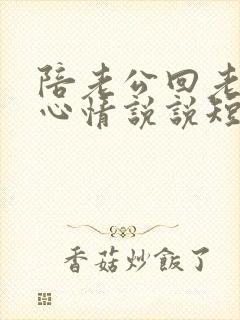 陪老公回老
心情说说短
香菇炒飯了